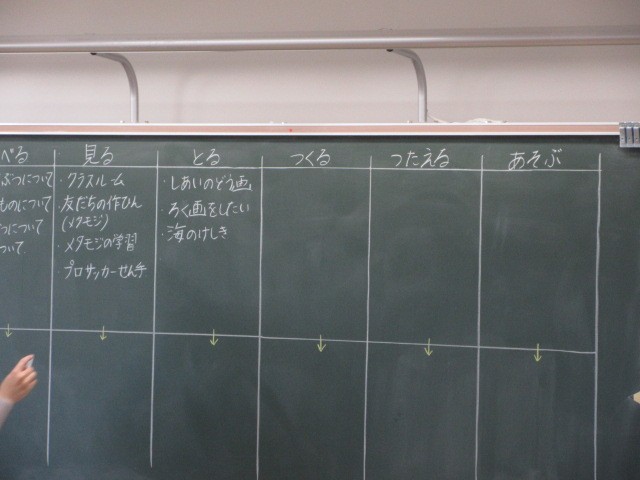 べる
ぶつについて
ものについて
つについて
ついて
見る
・クラスルーム
・友だちの作ひん
(メタモジ)
・メタモジの学習
プロサッカーせん手
とる
・しあいのどう画
・ろく画をしたい
・海のけしき
つくる
つたえる
あそぶ